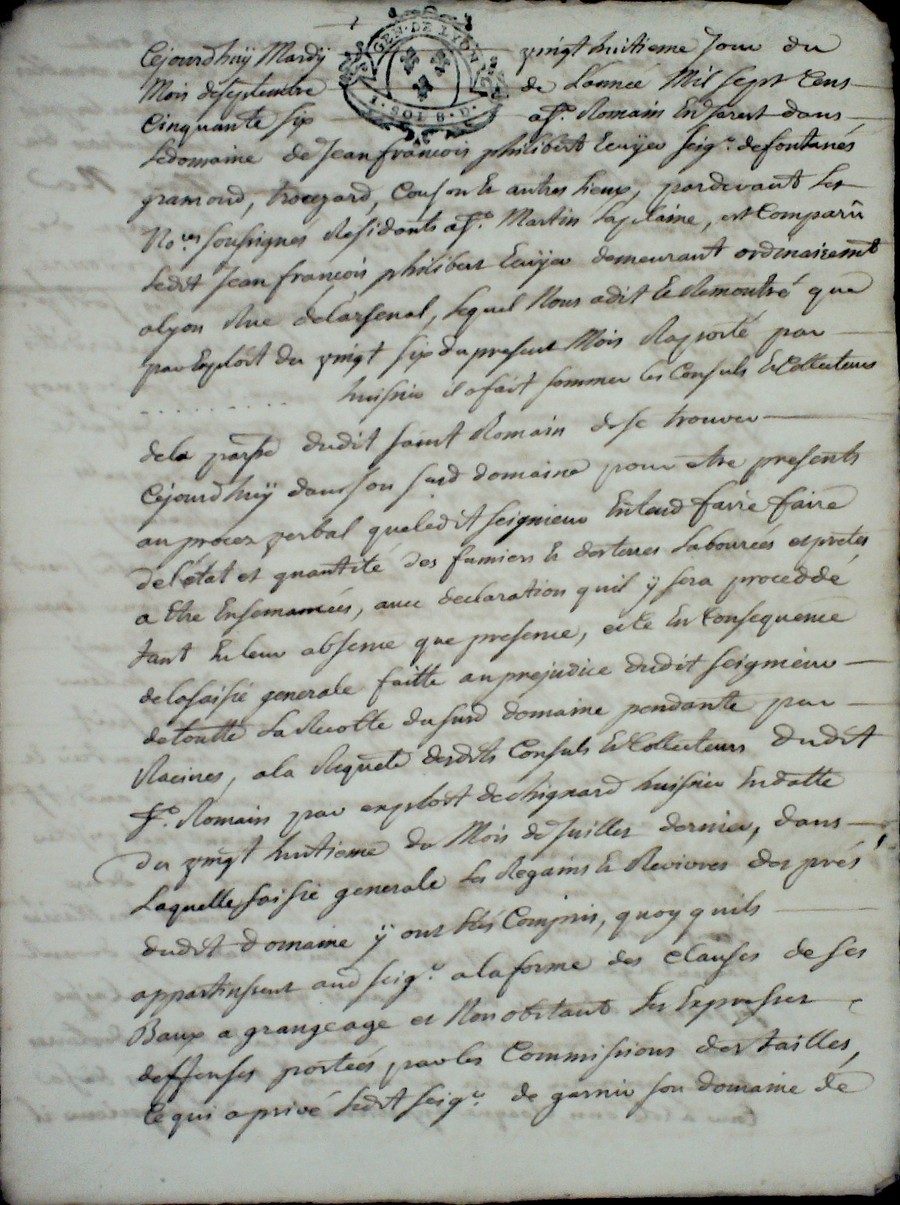 Cejourdhuÿ Mardÿ vingt huitieme Jour du
GEN · DE LYON
1 · SOL 8 · D ·
Mois deseptembre de Lannée Mil sept Cens
Cinquante six a St. Romain En Jarest dans
Ledomaine de Jean francois philibert Ecuÿer seigr. defontanés
gramond, trocezard, Couson & autres lieux, pardevant les
Nores soussignés Residants a St. Martin Laplaine, est Comparû
Ledit Jean francois philibert Ecuÿer demeurant ordinairemt
alyon Rue delarsenal, lequel Nous adit & Remontré que
par Exploit du vingt six du present Mois Raporté par
. . . . . . . . . . huissier il a fait sommer les Consuls & Collecteurs
dela parse dudit saint Romain de se trouver
Cejourdhuÿ dans son susd domaine pour etre presents
au procez verbal queledit seigneur Entend faire faire
del'état et quantité des fumiers & des terres Labourées et pretes
a Etre Ensemancées, avec declaration quil ÿ sera proceddé
tant En leur absence que presence, et ce En Consequence
delasaisie generale faitte au prejudice dudit seigneur
detoutte La Recolte dusurd domaine pendante par
Racines, ala Requete desdits Consuls & Collecteurs dudit
St. Romain par exploit de chignard huissier Endatte
du vingt huitieme du Mois de Juillet dernier, dans
Laquelle saisie generale les Regains & Revivres des prés
dudit domaine ÿ ont étés Compris, quoy quils
appartinssent aud seigr. ala forme des clauses de ses
Baux a grangeage et Nonobstant les Expresses
deffenses portées par les Commissions des tailles,
Ce qui a privé ledit seigr. de garnir son domaine de